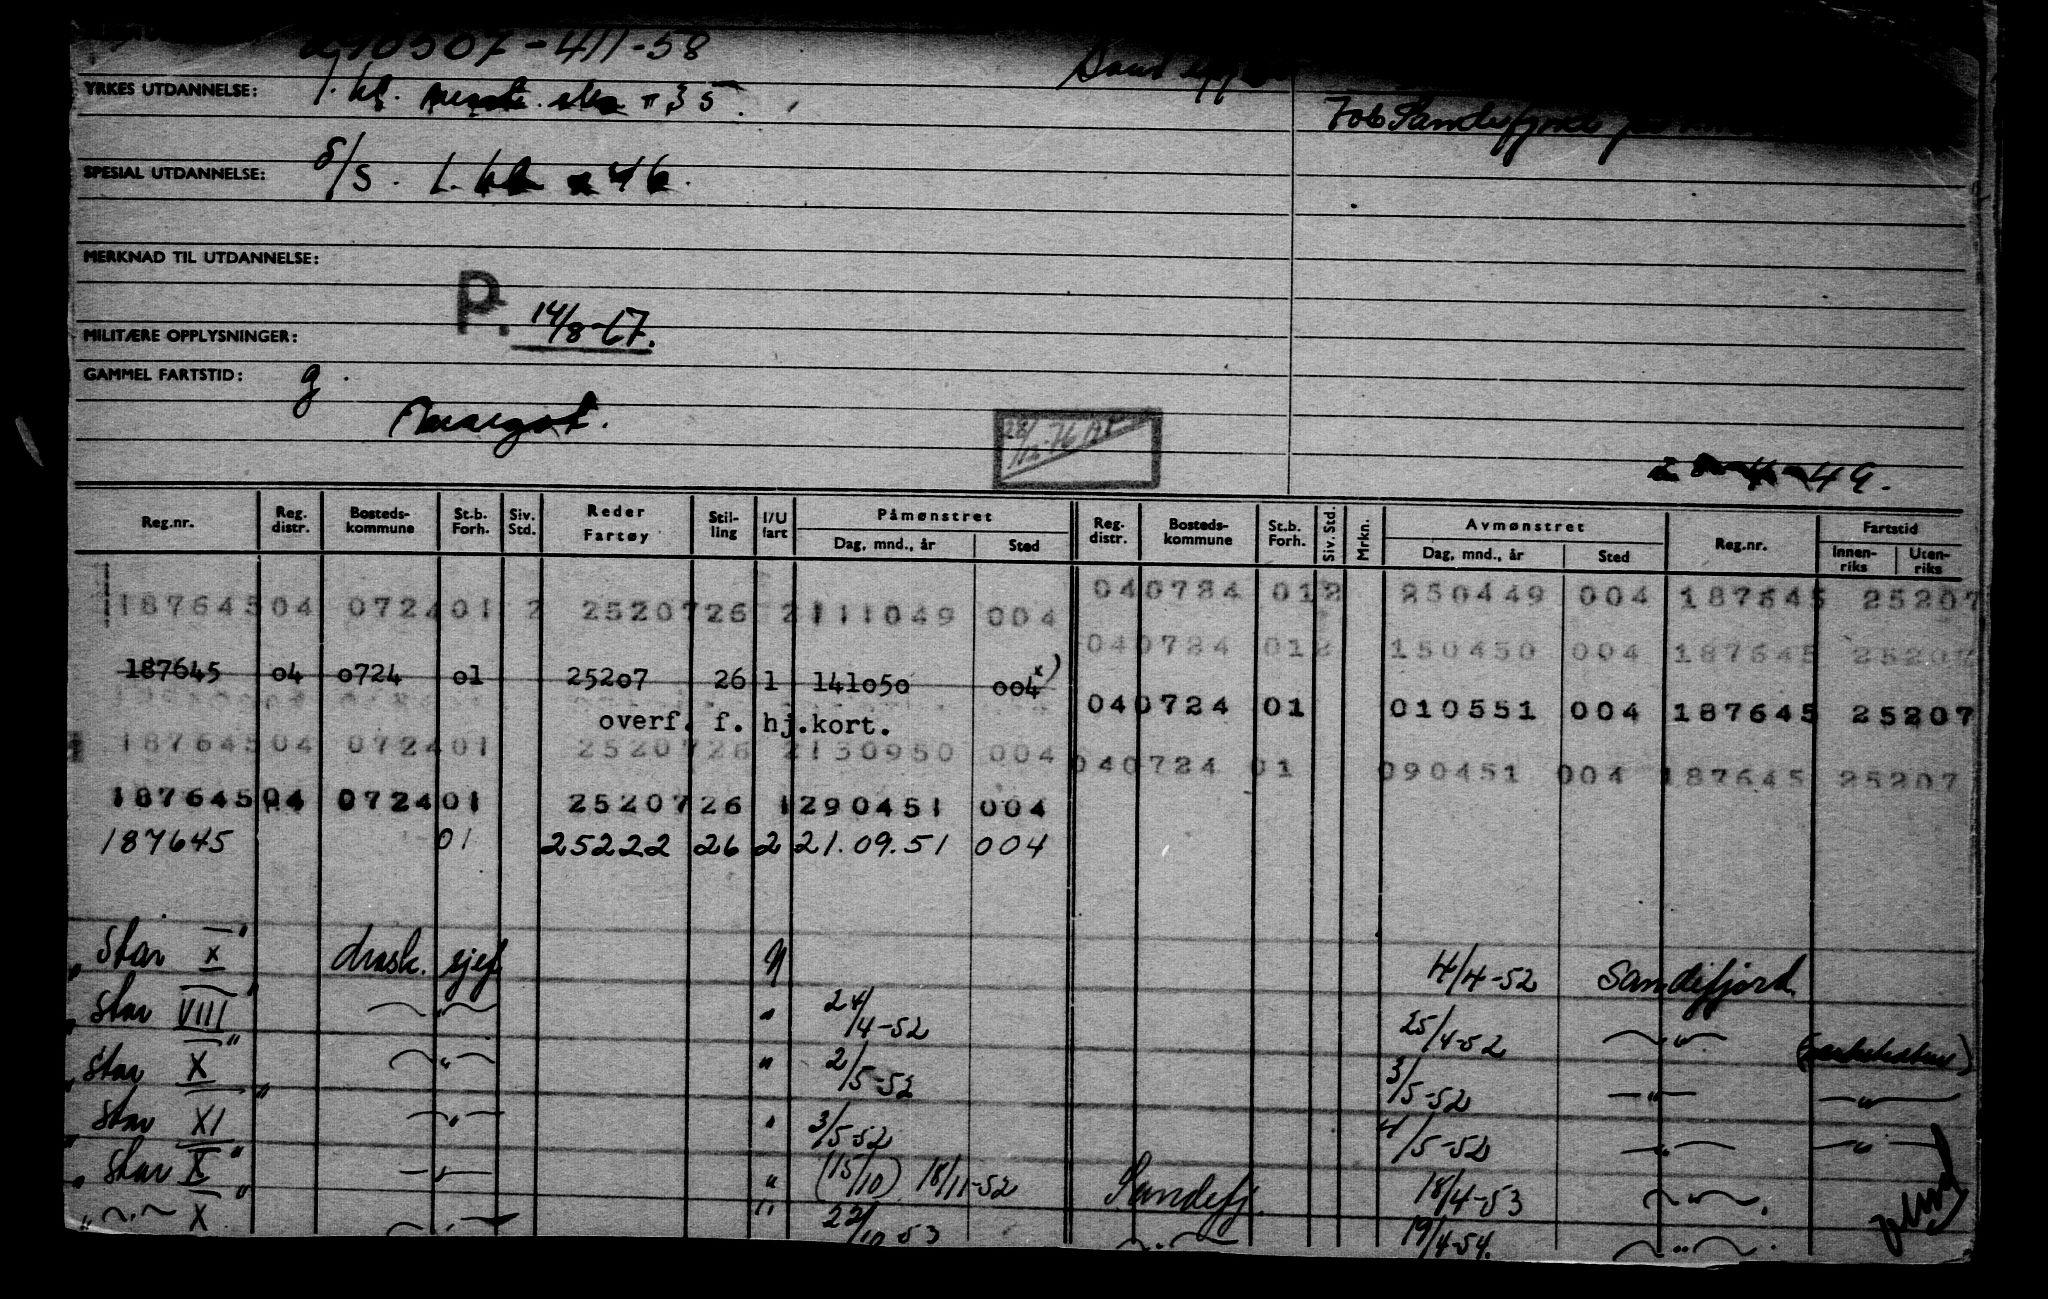 10507-411-58
YRKES UTDANNELSE: 1. kl. 35.
SPESIAL UTDANNELSE: 1. kl. 46.
MERKNAD TIL UTDANNELSE:
P. 14/8-67.
MILITÆRE OPPLYSNINGER:
GAMMEL FARTSTID: g.
Margot.
49.
Reg.nr. Reg. distr. Bosteds-kommune St.b. Forh. Siv. Std. Reder Fartøy Stil-ling I/U fart Påmønstret Dag, mnd., år Sted Reg. distr. Bosteds-kommune St.b. Forh. Siv. Std. Mrkn. Avmønstret Dag, mnd., år Sted Reg.nr. Fartstid Innen-riks Uten-riks
187645 04 0724 01 2 25207 26 2 111049 004 04 0724 01 2 250449 004 187645 25207
04 0724 01 2 150450 004 187645 25207
187645 04 0724 01 25207 26 1 141050 004 x)
overf. f. hj.kort. 04 0724 01 010551 004 187645 25207
187645 04 0724 01 25207 26 2 130950 004 04 0724 01 090451 004 187645 25207
187645 04 0724 01 25207 26 1 290451 004
187645 01 25222 26 2 21.09.51 004
"Star X" 4/4-52 Sandefjord.
"Star VIII" — " — " 24/4-52 25/4-52 — " —
"Star X" — " — " 2/5-52 3/5-52 — " — — " —
"Star XI" — " — " 3/5-52 4/5-52 — " — — " —
"Star X" — " — " (15/10) 18/11-52 Sandefj. 18/4-53 — " —
" — " — X" — " — " 22/10-53 — " — 19/4-54. — " —